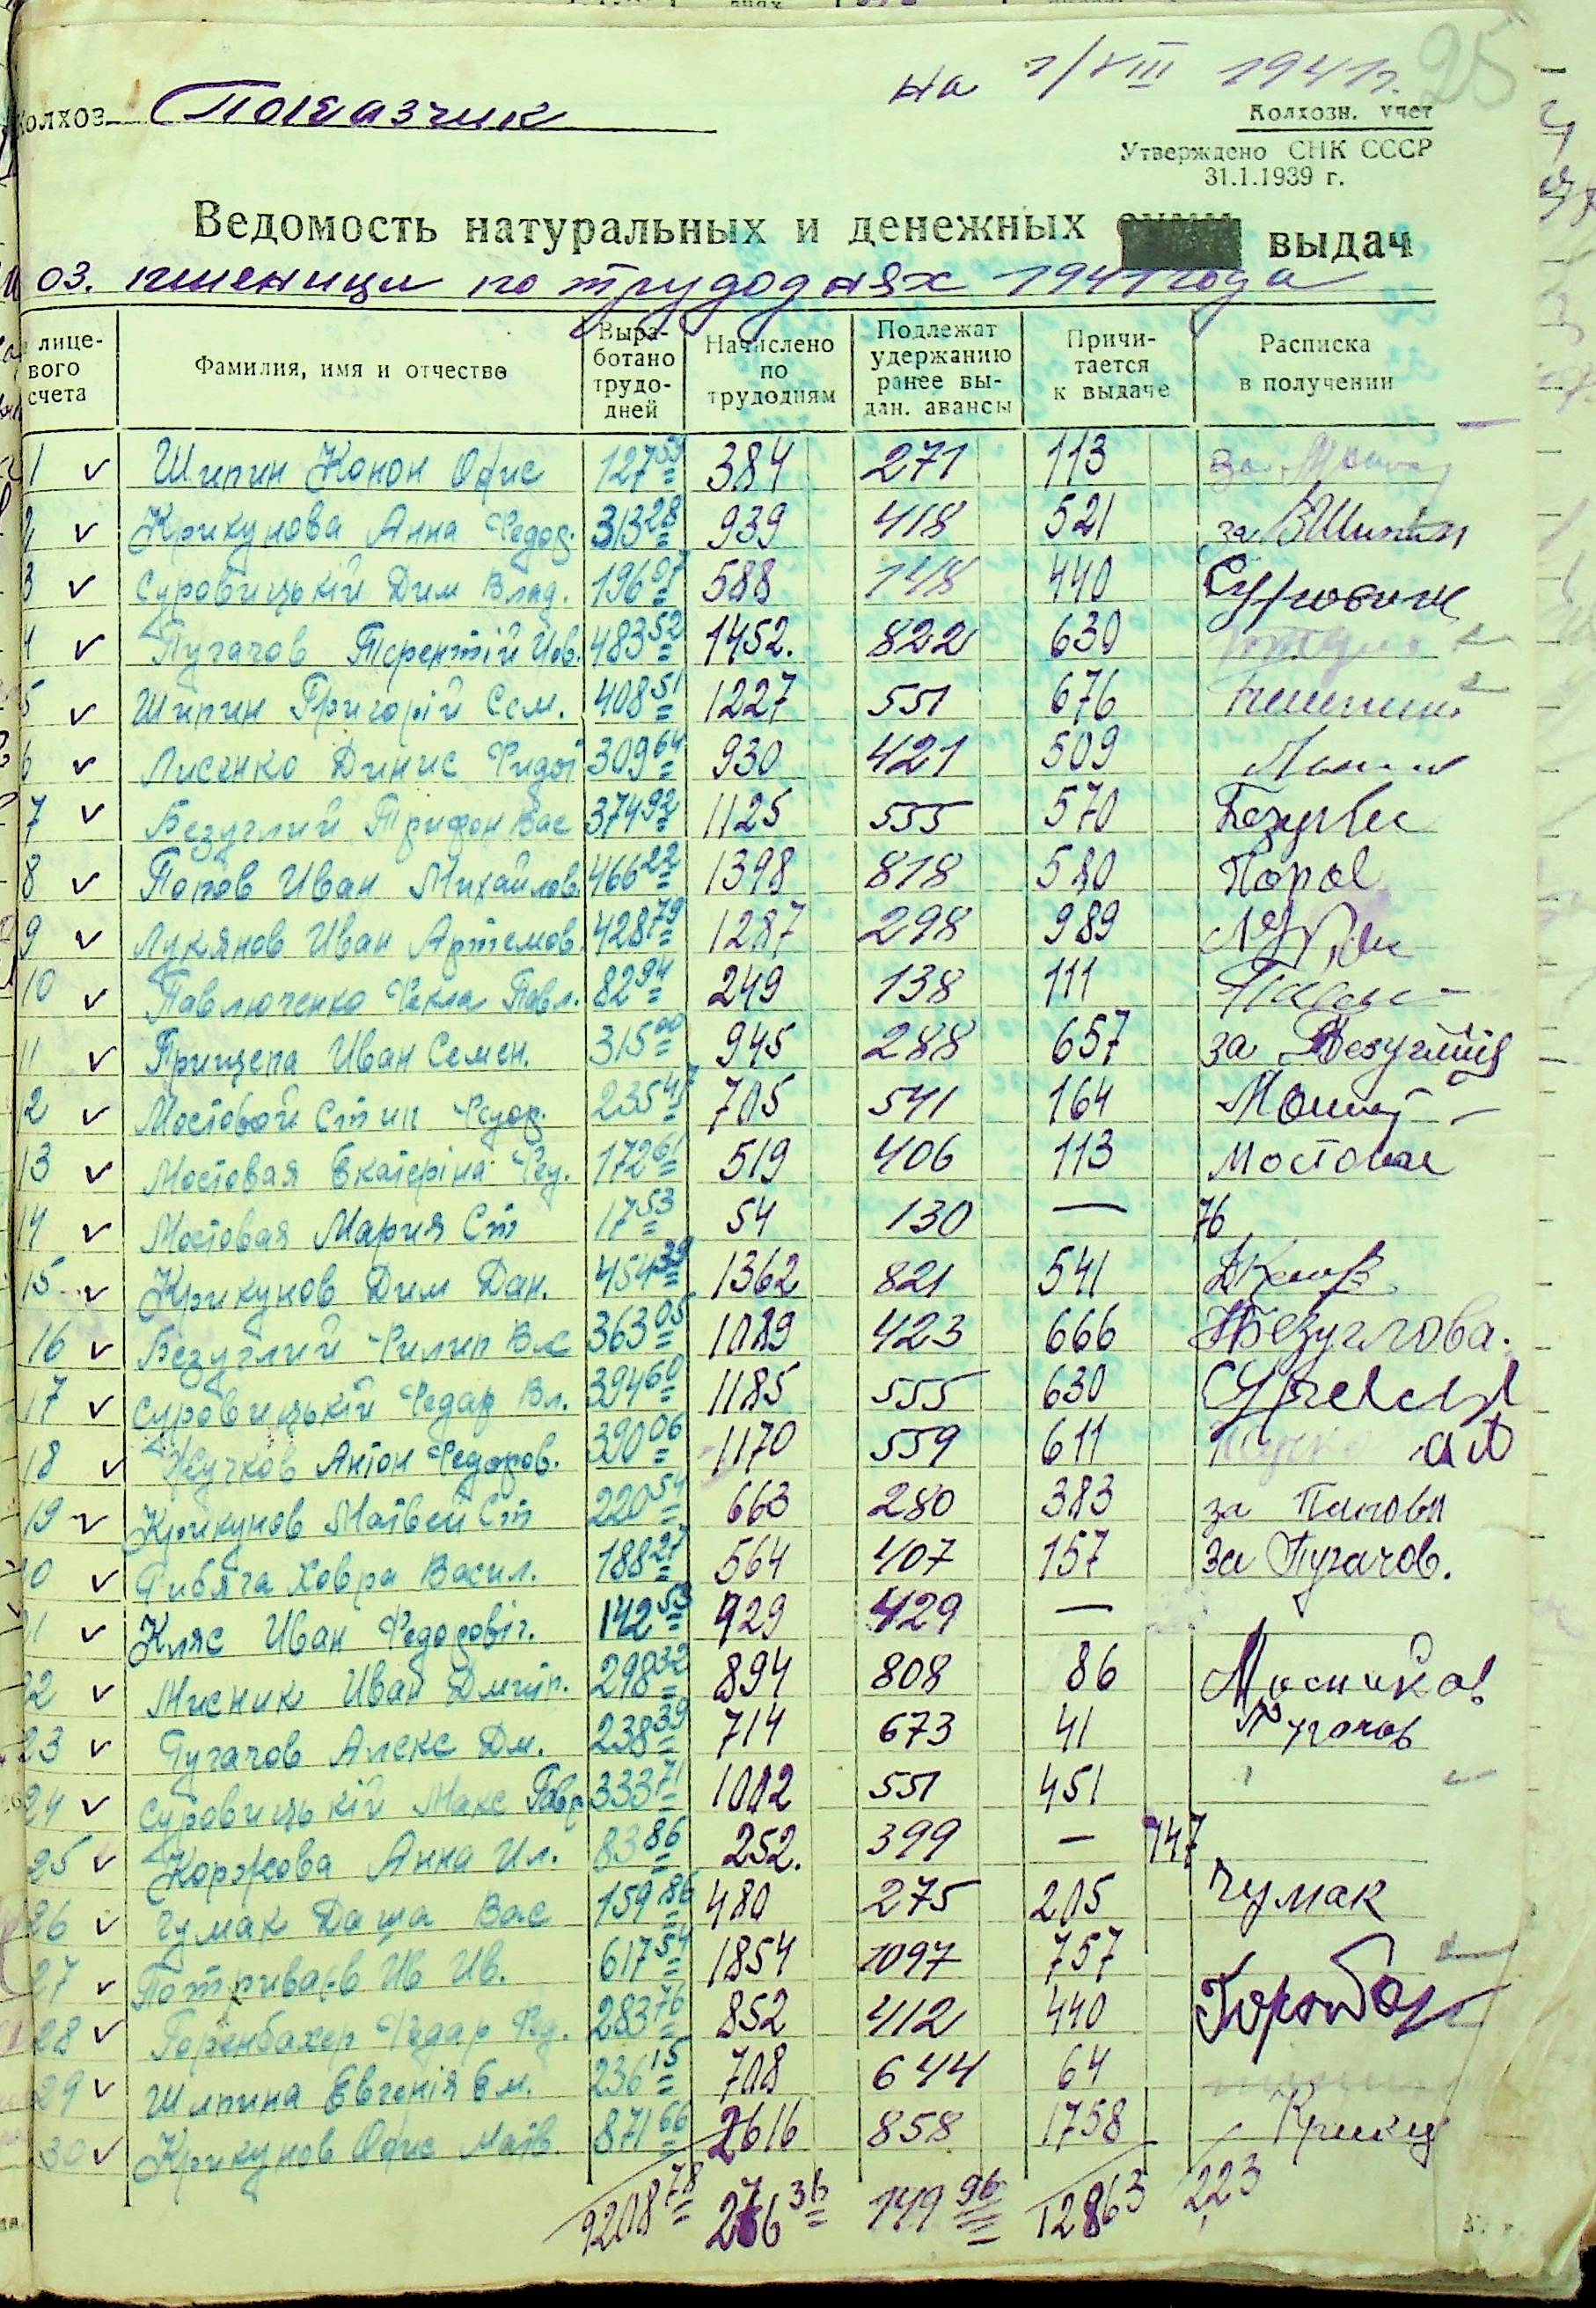 на 1/VIII 1941 г. 25
Колхоз Показчик
Колхозн. учет
Утверждено СНК СССР
31.1.1939 г.
Ведомость натуральных и денежных выдач
оз. пшеници по трудоднях 1941 года
лице-вого счета Фамилия, имя и отчество Выра-ботано трудо-дней Начислено по трудодням Подлежат удержанию ранее вы-дан. авансы Причи-тается к выдаче Расписка в получении
1 Шипин Конон Офис 127 55 384 271 113 за
2 Крикунова Анна Федор. 313 28 939 418 521 за ВШипин
3 Суровицькій Дим Влад. 196 07 588 148 440 Суровиж
4 Пугачов Терентій Ив. 483 52 1452. 822 630
5 Шипин Григорій Сем. 408 51 1227 551 676
6 Лисенко Динис Фидот 309 64 930 421 509
7 Безуглий Трифон Вас 374 92 1125 555 570 Безуглы
8 Попов Иван Михайлов. 466 22 1398 818 580 Попов
9 Лукянов Иван Артемов. 428 79 1287 298 989
10 Павлюченко Фекла Павл. 82 94 249 138 111
11 Прищепа Иван Семен. 315 00 945 288 657 за Безуглий
12 Мостовой Стип Федор. 235 47 705 541 164
13 Мостовая Екатеріна Фед. 172 61 519 406 113 Мостовая
14 Мостовая Мария Ст 17 53 54 130 — 76
15 Крикунов Дим Дан. 454 39 1362 821 541
16 Безуглий Филип Вас 363 05 1089 423 666 Безуглова.
17 Суровицькій Федар Вл. 394 60 1185 555 630
18 Жучков Антон Федоров. 390 06 1170 559 611
19 Крикунов Матвей Ст 220 54 663 280 383 за Попови
20 Рибяга Ховра Васил. 188 27 564 407 157 за Пугачов.
21 Кляс Иван Федоровіч. 142 53 429 429 —
22 Мисник Иван Дмитр. 298 32 894 808 86 Мисников
23 Пугачов Алекс Дм. 238 39 714 673 41 Пугачов
24 Суровицькій Макс Гавр 333 71 1002 551 451
25 Коржова Анна Ил. 83 86 252. 399 — 147
26 Чумак Даша Вас 159 86 480 275 205 Чумак
27 Потриваєв Ив Ив. 617 54 1854 1097 757
28 Горенбахер Федар Фед. 283 76 852 412 440
29 Шипина Евгенія Ем. 236 15 708 644 64
30 Крикунов Офис Матв. 871 66 2616 858 1758 Крикун
9208 78 276 36 149 96 12863 223